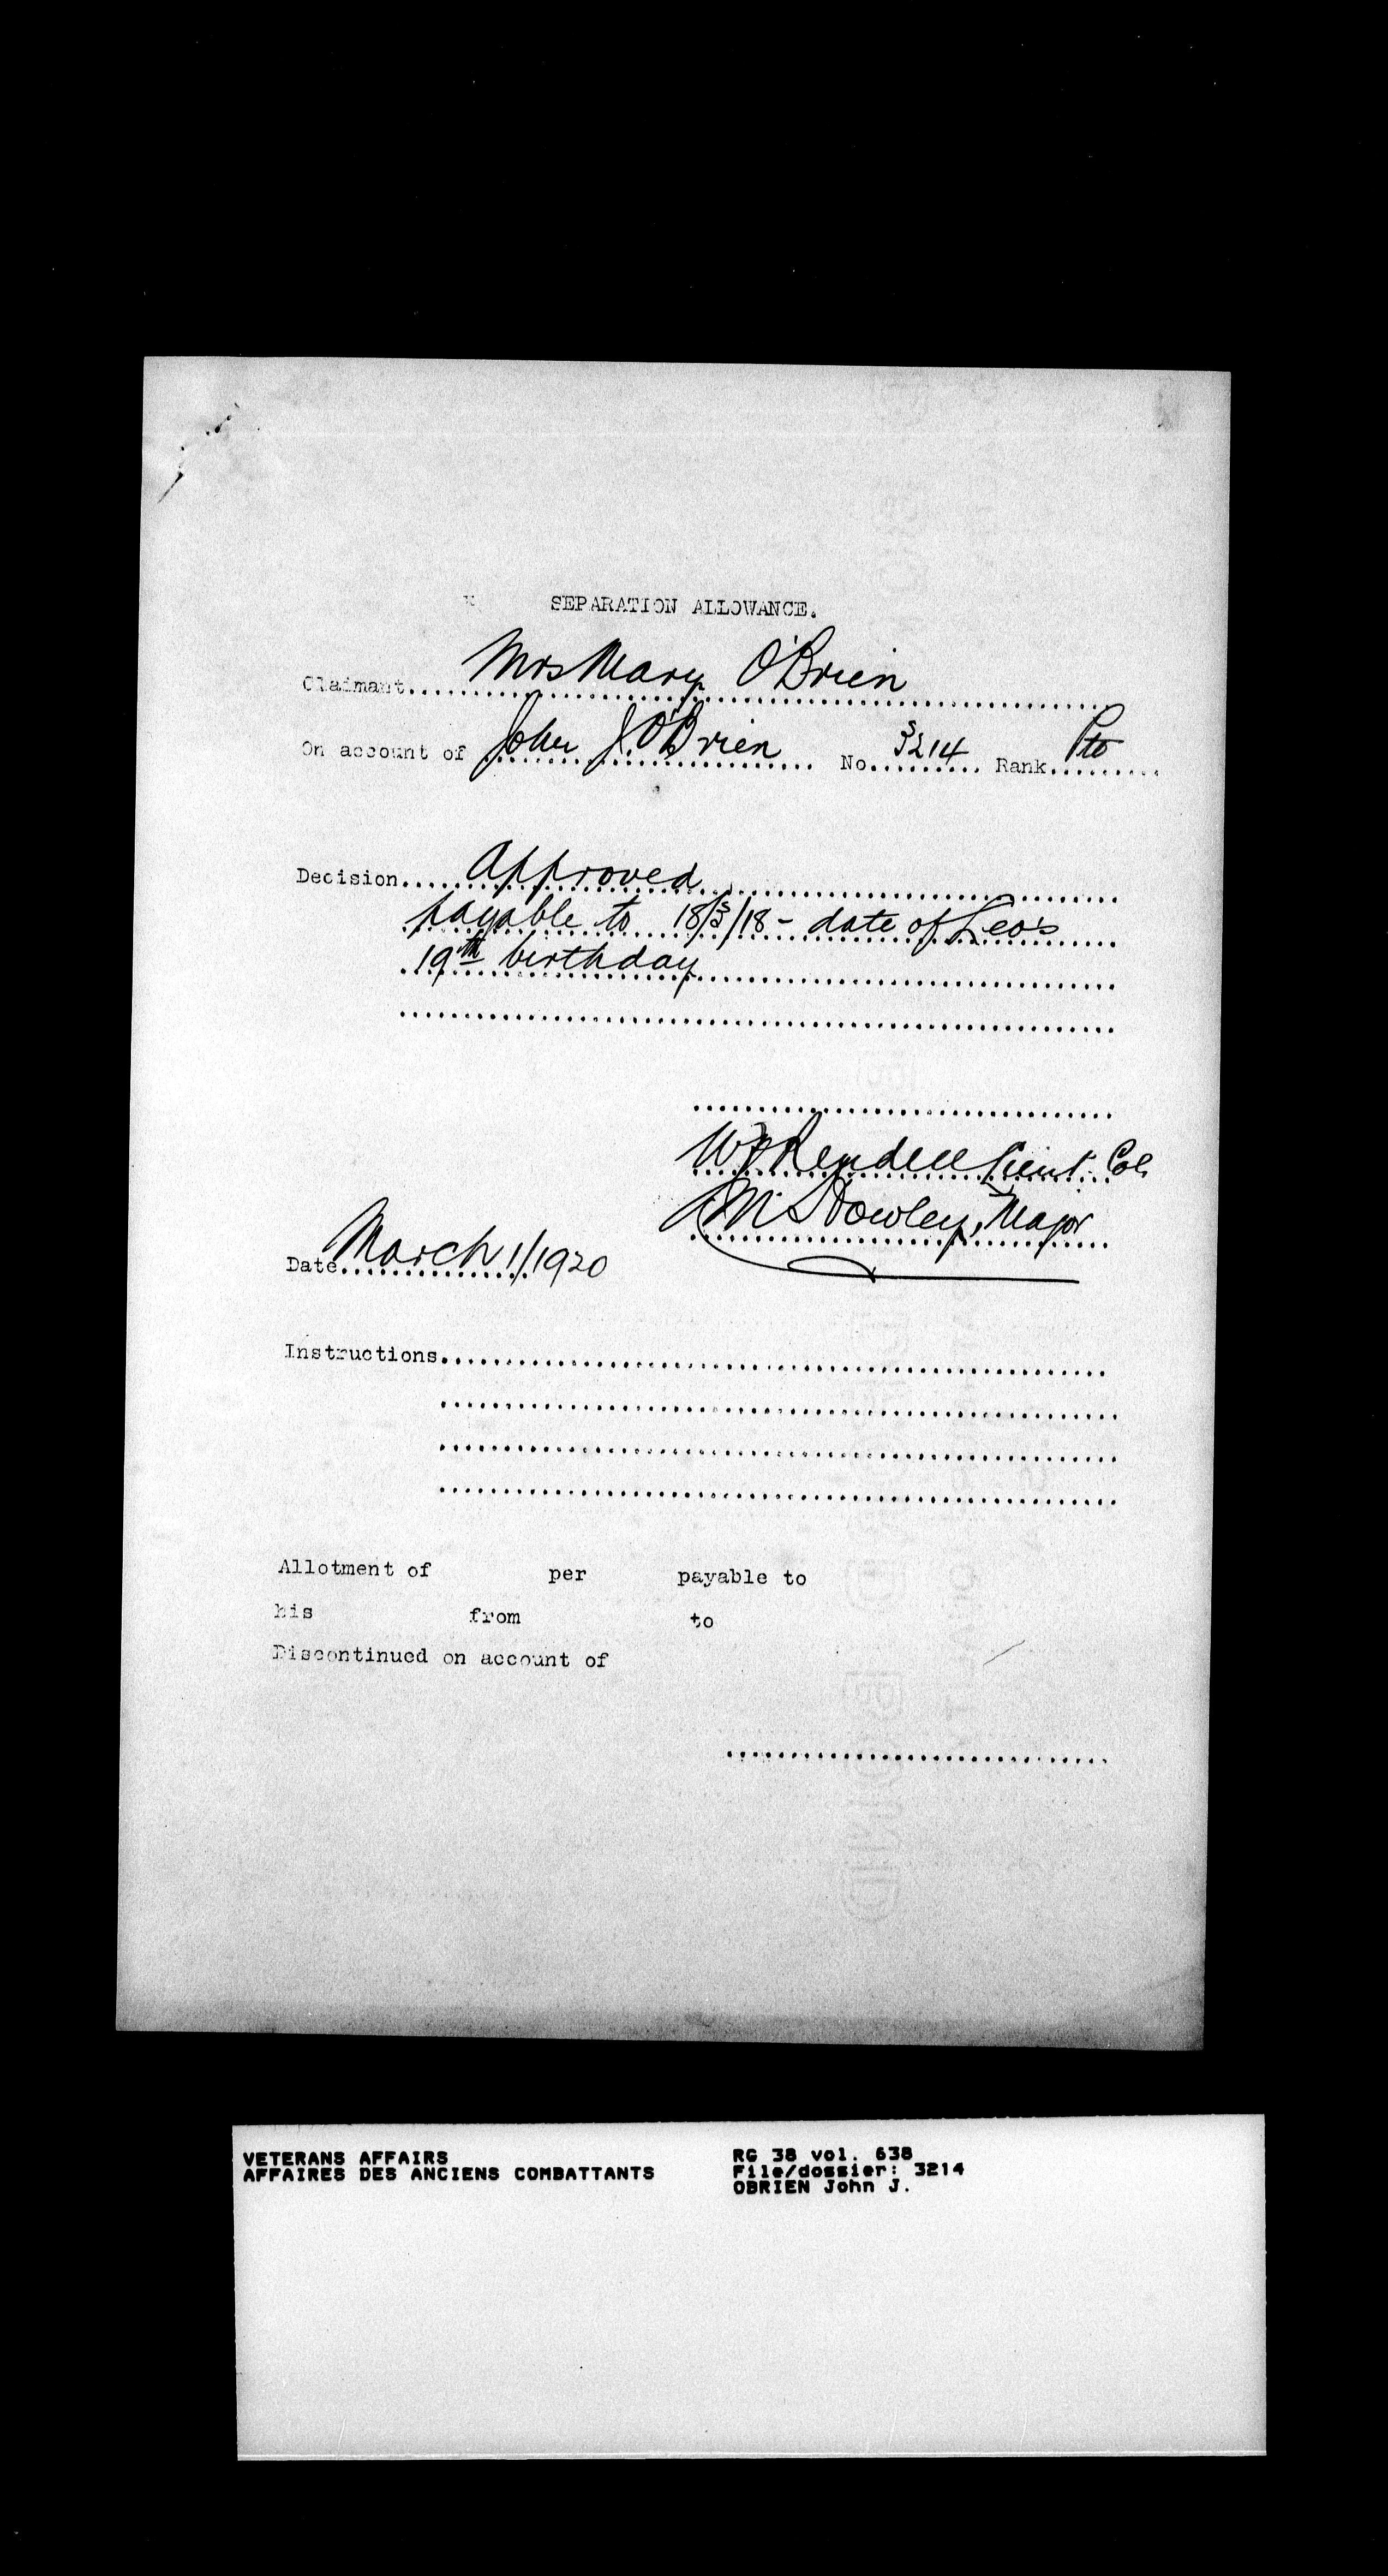 SEPARATION ALLOWANCE.
Claimant Mrs Mary O'Brien
On account of John J. O'Brien No. 3214 Rank Pte
Decision Approved
payable to 18/3/18 - date of Leo's
19th birthday
Rendell Lieut. Col
Howley, Major
Date March 1/1920
Instructions
Allotment of per payable to
his from to
Discontinued on account of
VETERANS AFFAIRS
AFFAIRES DES ANCIENS COMBATTANTS
RG 38 vol. 638
File/dossier: 3214
OBRIEN John J.